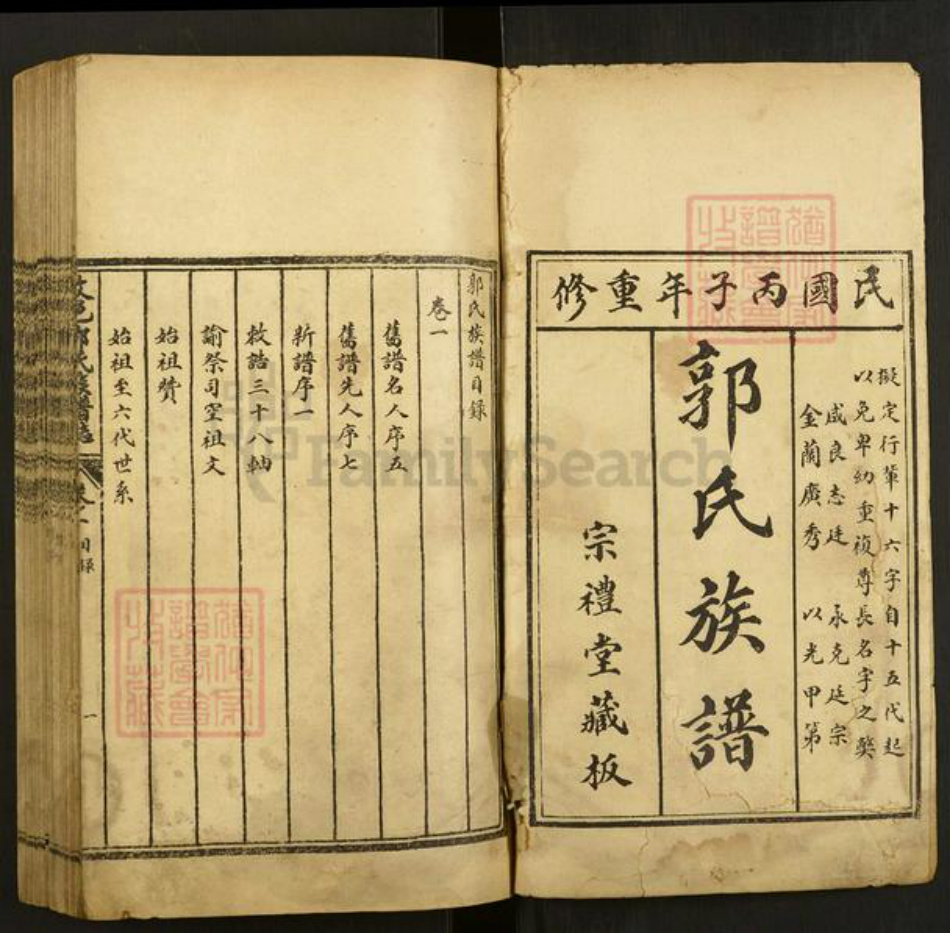 民國丙子年重修
擬定行輩十六字自十五代起
以免卑幼重複尊長名字之獘
咸良志廷 承克廷宗
金蘭廣秀 以光甲第
郭氏族譜
宗禮堂藏板
郭氏族譜目録
卷一
舊譜名人序五
舊譜先人序七
新譜序一
敕誥三十八軸
諭祭司空祖文
始祖贊
始祖至六代世系
郭氏族譜志
目録
一
FamilySearch